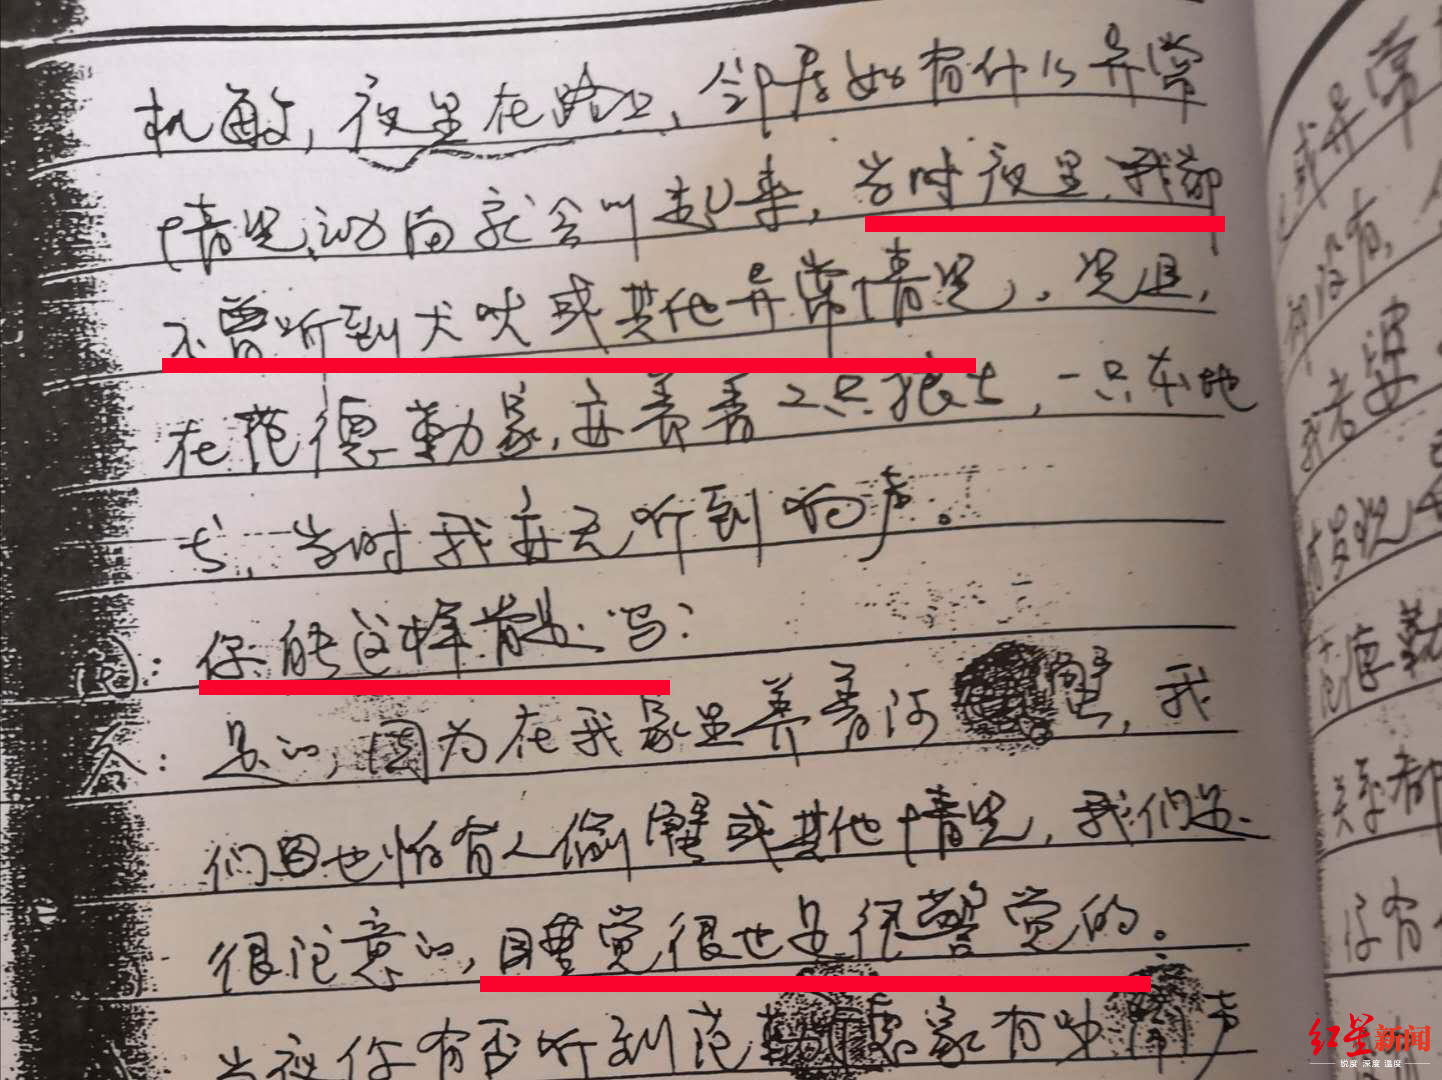 机敏，夜里在路口，邻居如有什么异常
情况、动向就会叫起来，当时夜里，我都
不曾听到犬吠或其他异常情况。况且，
在范德勤家，亦养着2只狼犬，一只本地
犬，当时我亦无听到响声。
问：你能这样肯定吗：
答：是的，因为在我家里养着河蟹，我
们因也怕有人偷蟹或其他情况，我们是
很注意的，睡觉很也是很警觉的。
当夜你有否听到范德勤家有吵闹声
或异常
都没有，
我老婆
有发现
范德勤
关系都
你有
红星新闻
锐度 深度 温度